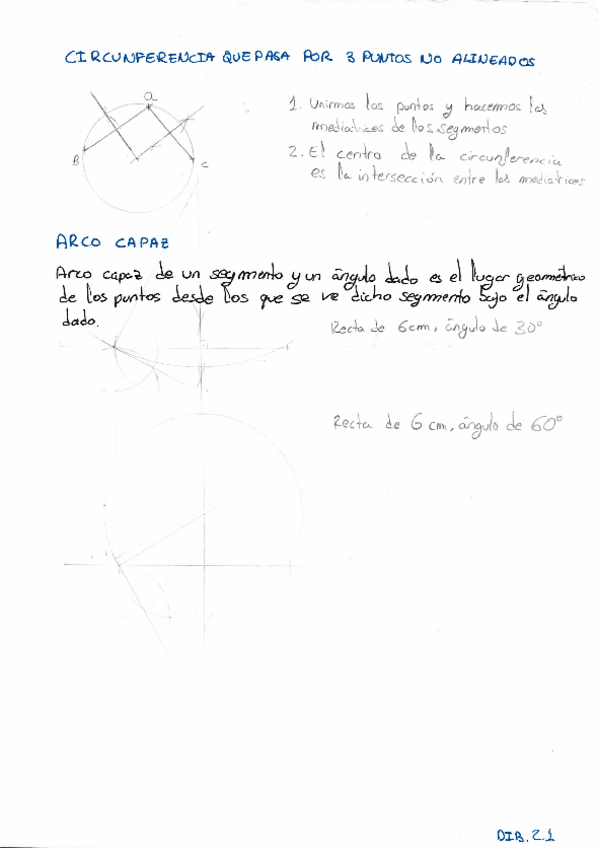 CIRCUNFERENCIA QUE PASA POR 3 PUNTOS NO ALINEADOS
a
B
C
1. Unimos los puntos y hacemos las
mediatrices de los segmentos
2. El centro de la circunferencia
es la intersección entre las mediatrices
ARCO CAPAZ
Arco capaz de un segmento y un ángulo dado es el lugar geométrico
de los puntos desde los que se ve dicho segmento bajo el ángulo
dado.
Recta de 6cm, ángulo de 30°
Recta de 6 cm, ángulo de 60°
DIB. 2.1